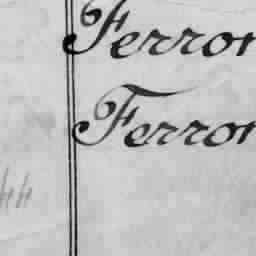 Ferron
Ferron